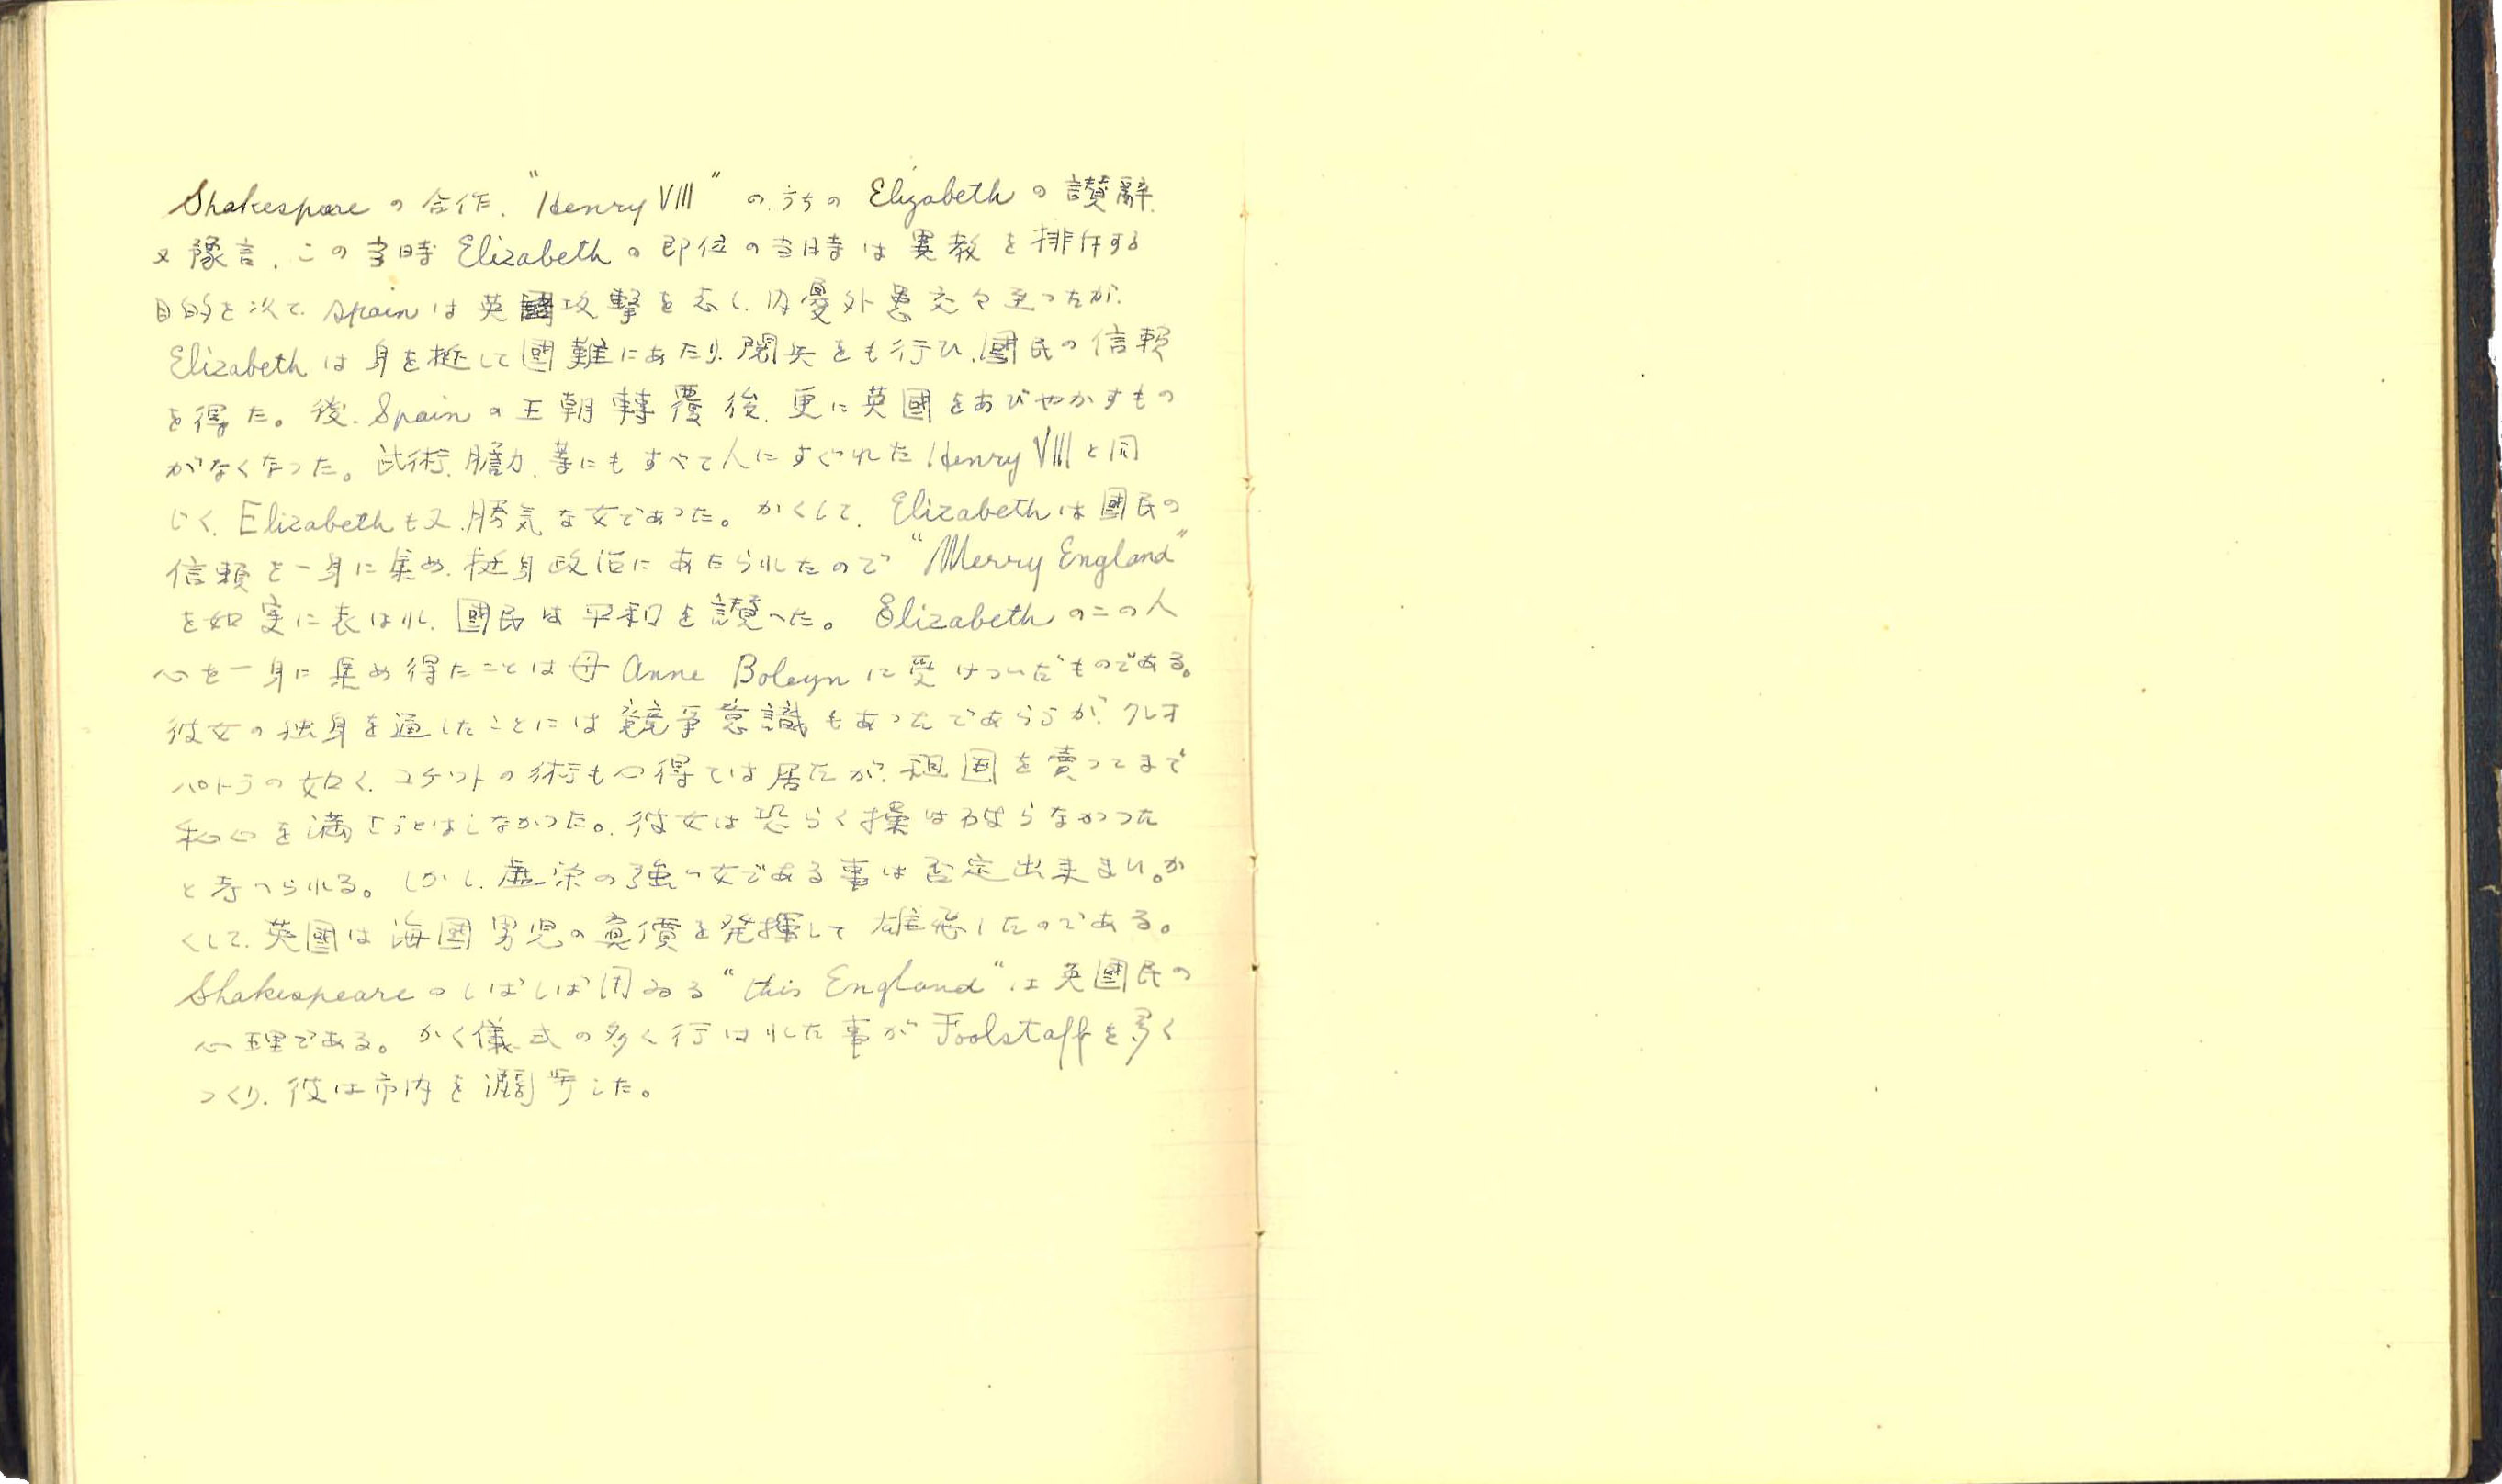 Shakespeareの合作、"Henry VIII" のうちの Elizabethの讃辭、
又豫言、この当時 Elizabethの即位の当時は異教を排斥する
目的を以て、Spainは英國攻撃を志し、内憂外患交々至つたが、
Elizabethは身を挺して國難にあたり、閲兵をも行ひ、國民の信頼
を得た。後、Spainの王朝轉覆後、更に英國をおびやかすもの
がなくなつた。武術、膽力、等にもすべて人にすぐれたHenry VIIIと同
じく、Elizabethも又、勝気な女であつた。かくして、Elizabethは國民の
信頼を一身に集め、挺身政治にあたられたので "Merry England"
を如実に表はれ、國民は平和を讃へた。Elizabethのこの人
心を一身に集め得たことは母Anne Boleynに受けついだものである。
彼女の独身を通したことには競争意識もあつたであらうが、クレオ
パトラの如く、コケットの術も心得ては居たが、祖国を賣つてまで
私心を満さうとはしなかつた。彼女は恐らく操は破らなかつた
と考へられる。しかし、虚栄の強い女である事は否定出来まい。か
くして、英國は海國男児の真價を発揮して雄飛したのである。
Shakespeareのしばしば用ゐる "this England" は英國民の
心理である。かく儀式の多く行はれた事がFoolstaffを多く
つくり、彼は市内を濶歩した。